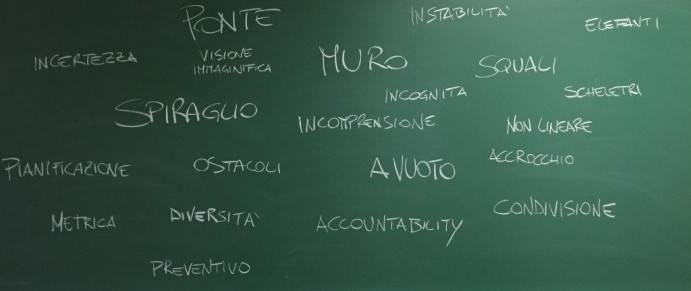 PONTE
INSTABILITÀ
ELEFANTI
INCERTEZZA
VISIONE
IMMAGINIFICA
MURO
SQUALI
INCOGNITA
SCHELETRI
SPIRAGLIO
INCOMPRENSIONE
NON LINEARE
PIANIFICAZIONE
OSTACOLI
A VUOTO
ACCROCCHIO
METRICA
DIVERSITÀ
ACCOUNTABILITY
CONDIVISIONE
PREVENTIVO